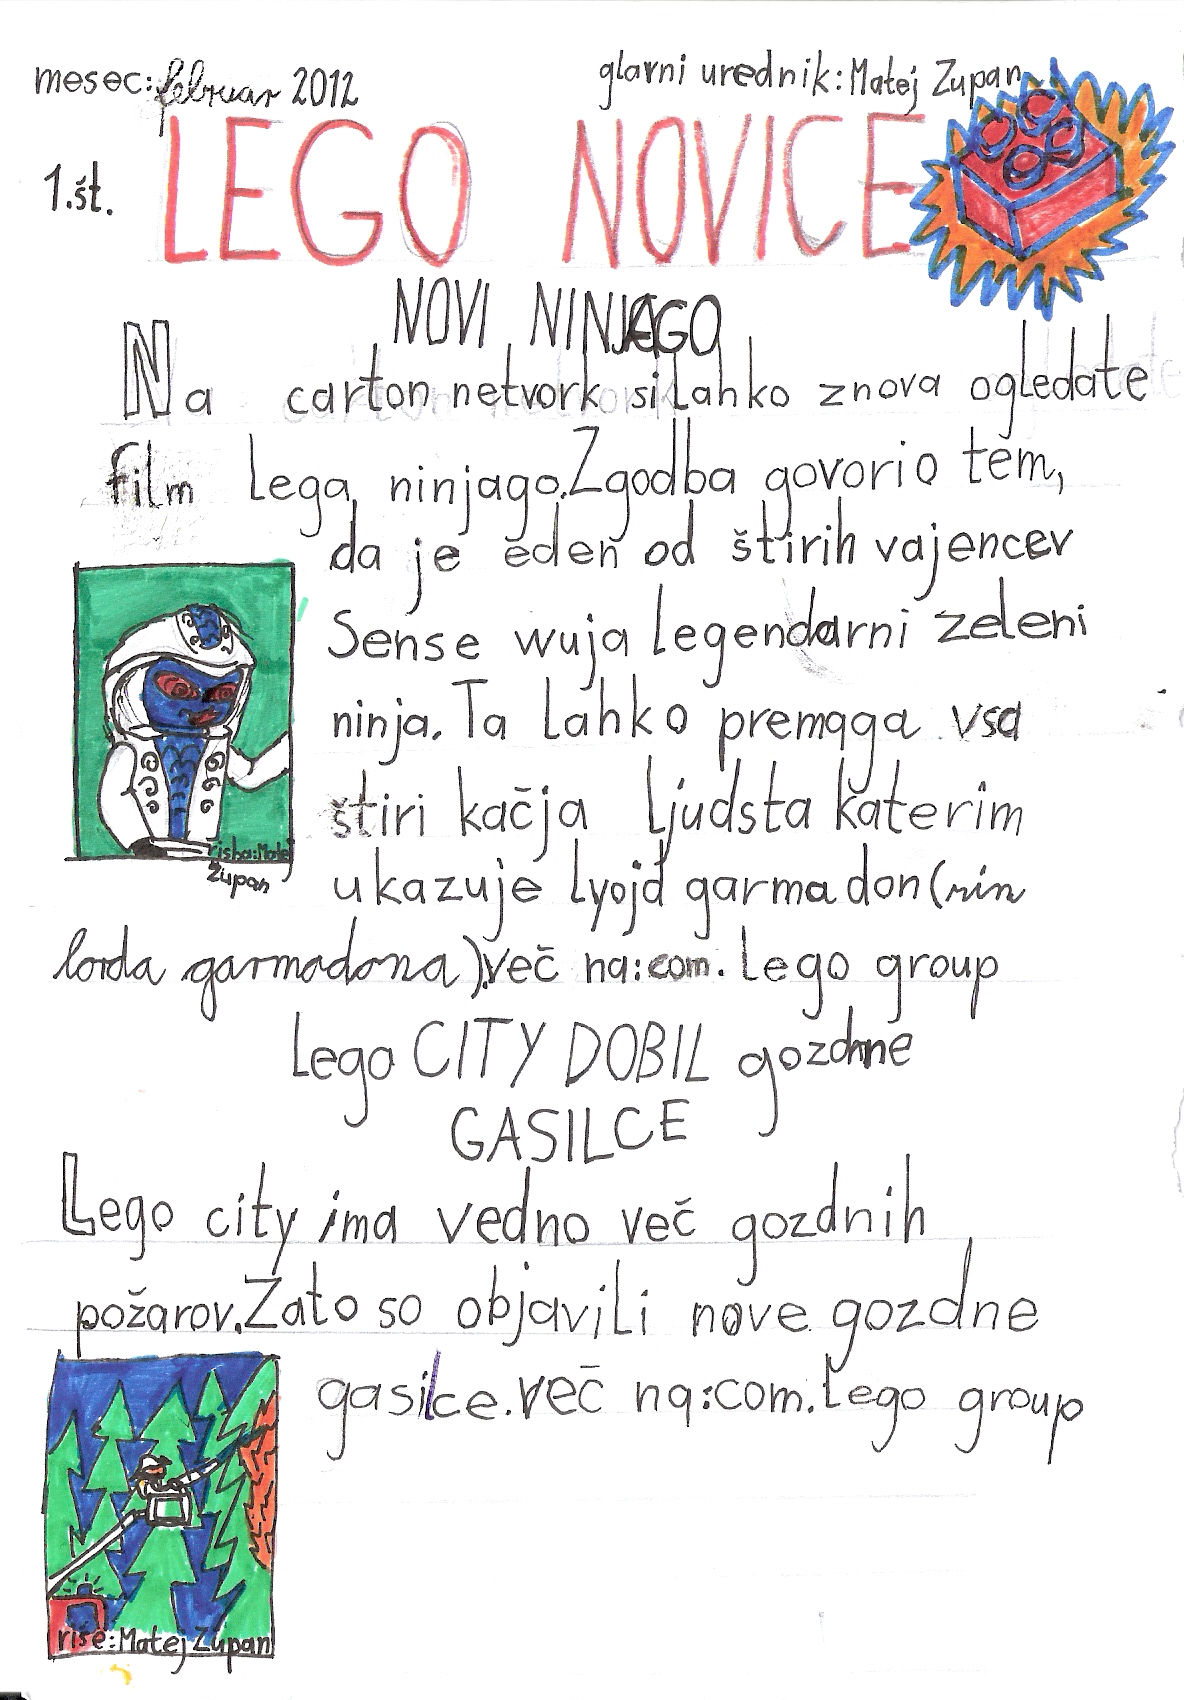 mesec: februar 2012
glavni urednik: Matej Zupan
1.št.
LEGO NOVICE
NOVI NINJAGO
Na carton netvork si lahko znova ogledate
film Lega ninjago. Zgodba govorio tem,
da je eden od štirih vajencev
Sense wuja legendarni zeleni
ninja. Ta lahko premaga vsa
štiri kačja ljudsta katerim
ukazuje Lyojd garmadon (sin
lorda garmadona). več na: com. Lego group
risba: Matej
Zupan
Lego CITY DOBIL gozdne
GASILCE
Lego city ima vedno več gozdnih
požarov. Zato so objavili nove gozdne
gasilce. več na: com. Lego group
riše: Matej Zupan